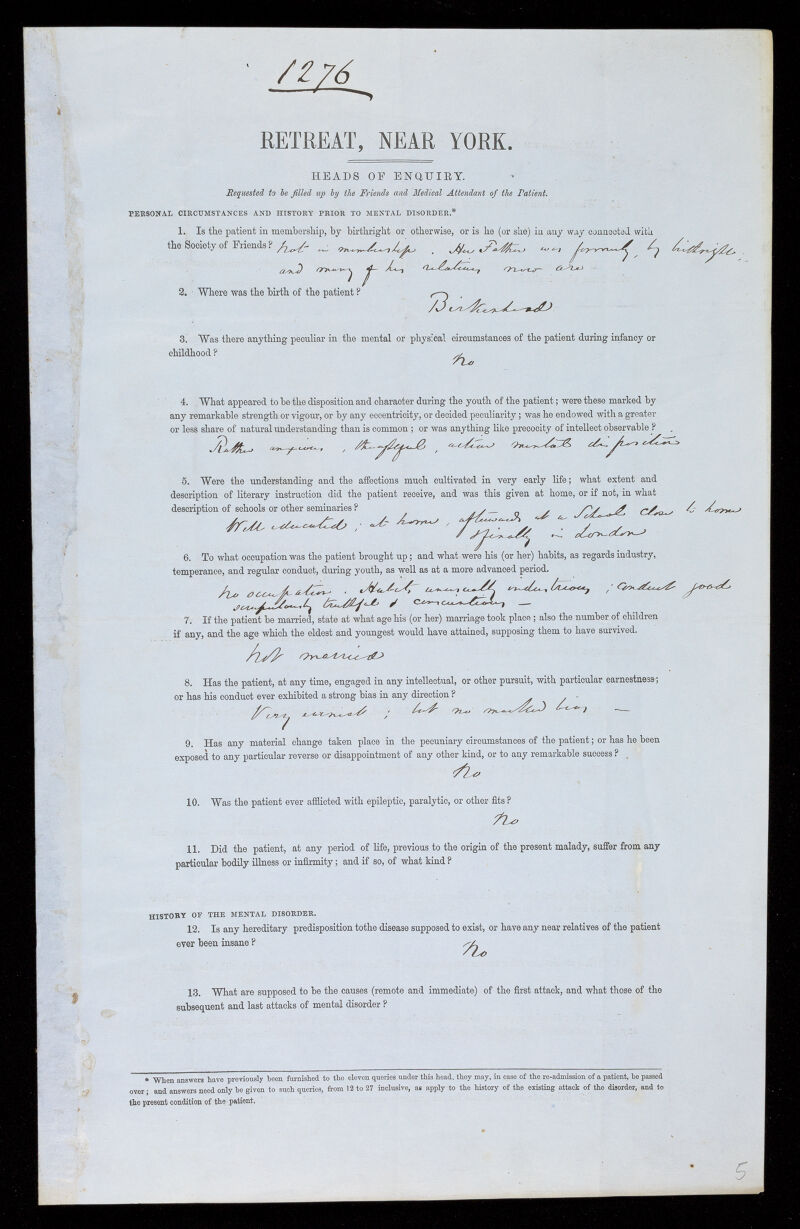 1276
RETREAT, NEAR YORK.
HEADS OF ENQUIRY.
Requested to be filled up by the Friends and Medical Attendant of the Patient.
PERSONAL CIRCUMSTANCES AND HISTORY PRIOR TO MENTAL DISORDER.*
1. Is the patient in membership, by birthright or otherwise, or is he (or she) in any way connected with
the Society of Friends? Not in membership. Her Father was formerly, by birthright
and many of his relatives now are
2. Where was the birth of the patient?
Birkenhead
3. Was there anything peculiar in the mental or physical circumstances of the patient during infancy or
childhood?
No
4. What appeared to be the disposition and character during the youth of the patient; were these marked by
any remarkable strength or vigour, or by any eccentricity, or decided peculiarity; was he endowed with a greater
or less share of natural understanding than is common; or was anything like precocity of intellect observable?
Rather anxious, thoughtful, active mental disposition
5. Were the understanding and the affections much cultivated in very early life; what extent and
description of literary instruction did the patient receive, and was this given at home, or if not, in what
description of schools or other seminaries?
Well educated; at home, afterwards at a School close to home
& finally in London
6. To what occupation was the patient brought up; and what were his (or her) habits, as regards industry,
temperance, and regular conduct, during youth, as well as at a more advanced period.
No occupation. Habits unusually industrious; conduct good
scrupulously truthful & conscientious —
7. If the patient be married, state at what age his (or her) marriage took place; also the number of children
if any, and the age which the eldest and youngest would have attained, supposing them to have survived.
Not married
8. Has the patient, at any time, engaged in any intellectual, or other pursuit, with particular earnestness;
or has his conduct ever exhibited a strong bias in any direction?
Very earnest; but no marked bias —
9. Has any material change taken place in the pecuniary circumstances of the patient; or has he been
exposed to any particular reverse or disappointment of any other kind, or to any remarkable success?
No
10. Was the patient ever afflicted with epileptic, paralytic, or other fits?
No
11. Did the patient, at any period of life, previous to the origin of the present malady, suffer from any
particular bodily illness or infirmity; and if so, of what kind?
HISTORY OF THE MENTAL DISORDER.
12. Is any hereditary predisposition tothe disease supposed to exist, or have any near relatives of the patient
ever been insane?
No
13. What are supposed to be the causes (remote and immediate) of the first attack, and what those of the
subsequent and last attacks of mental disorder?
* When answers have previously been furnished to the eleven queries under this head, they may, in case of the re-admission of a patient, be passed
over; and answers need only be given to such queries, from 12 to 27 inclusive, as apply to the history of the existing attack of the disorder, and to
the present condition of the patient.
5